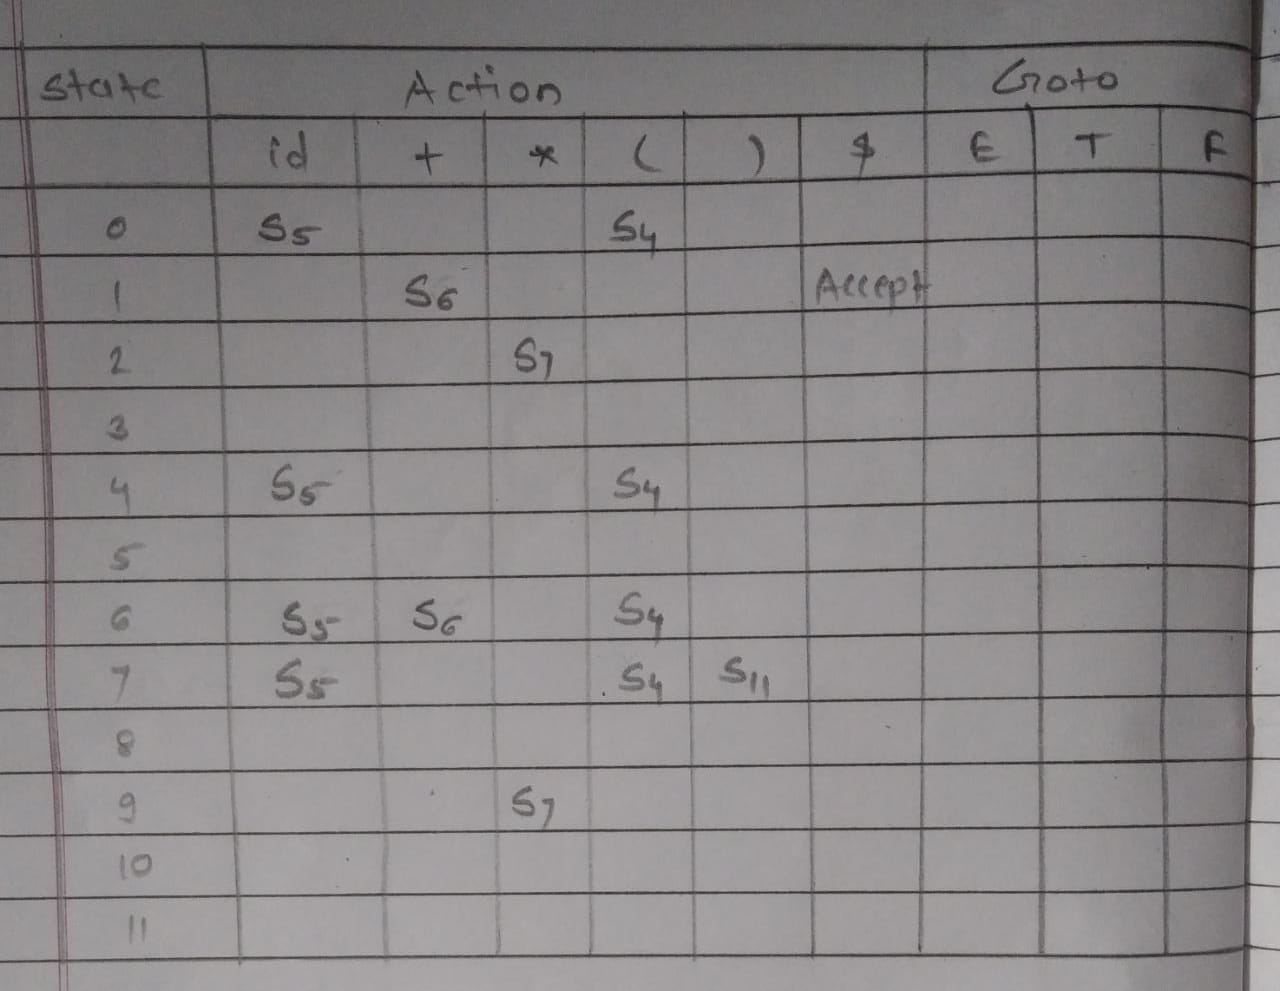 State Action Goto
id + * ( ) $ E T F
0 S5 S4
1 S6 Accept
2 S7
3
4 S5 S4
5
6 S5 S6 S4
7 S5 S4 S11
8
9 S7
10
11